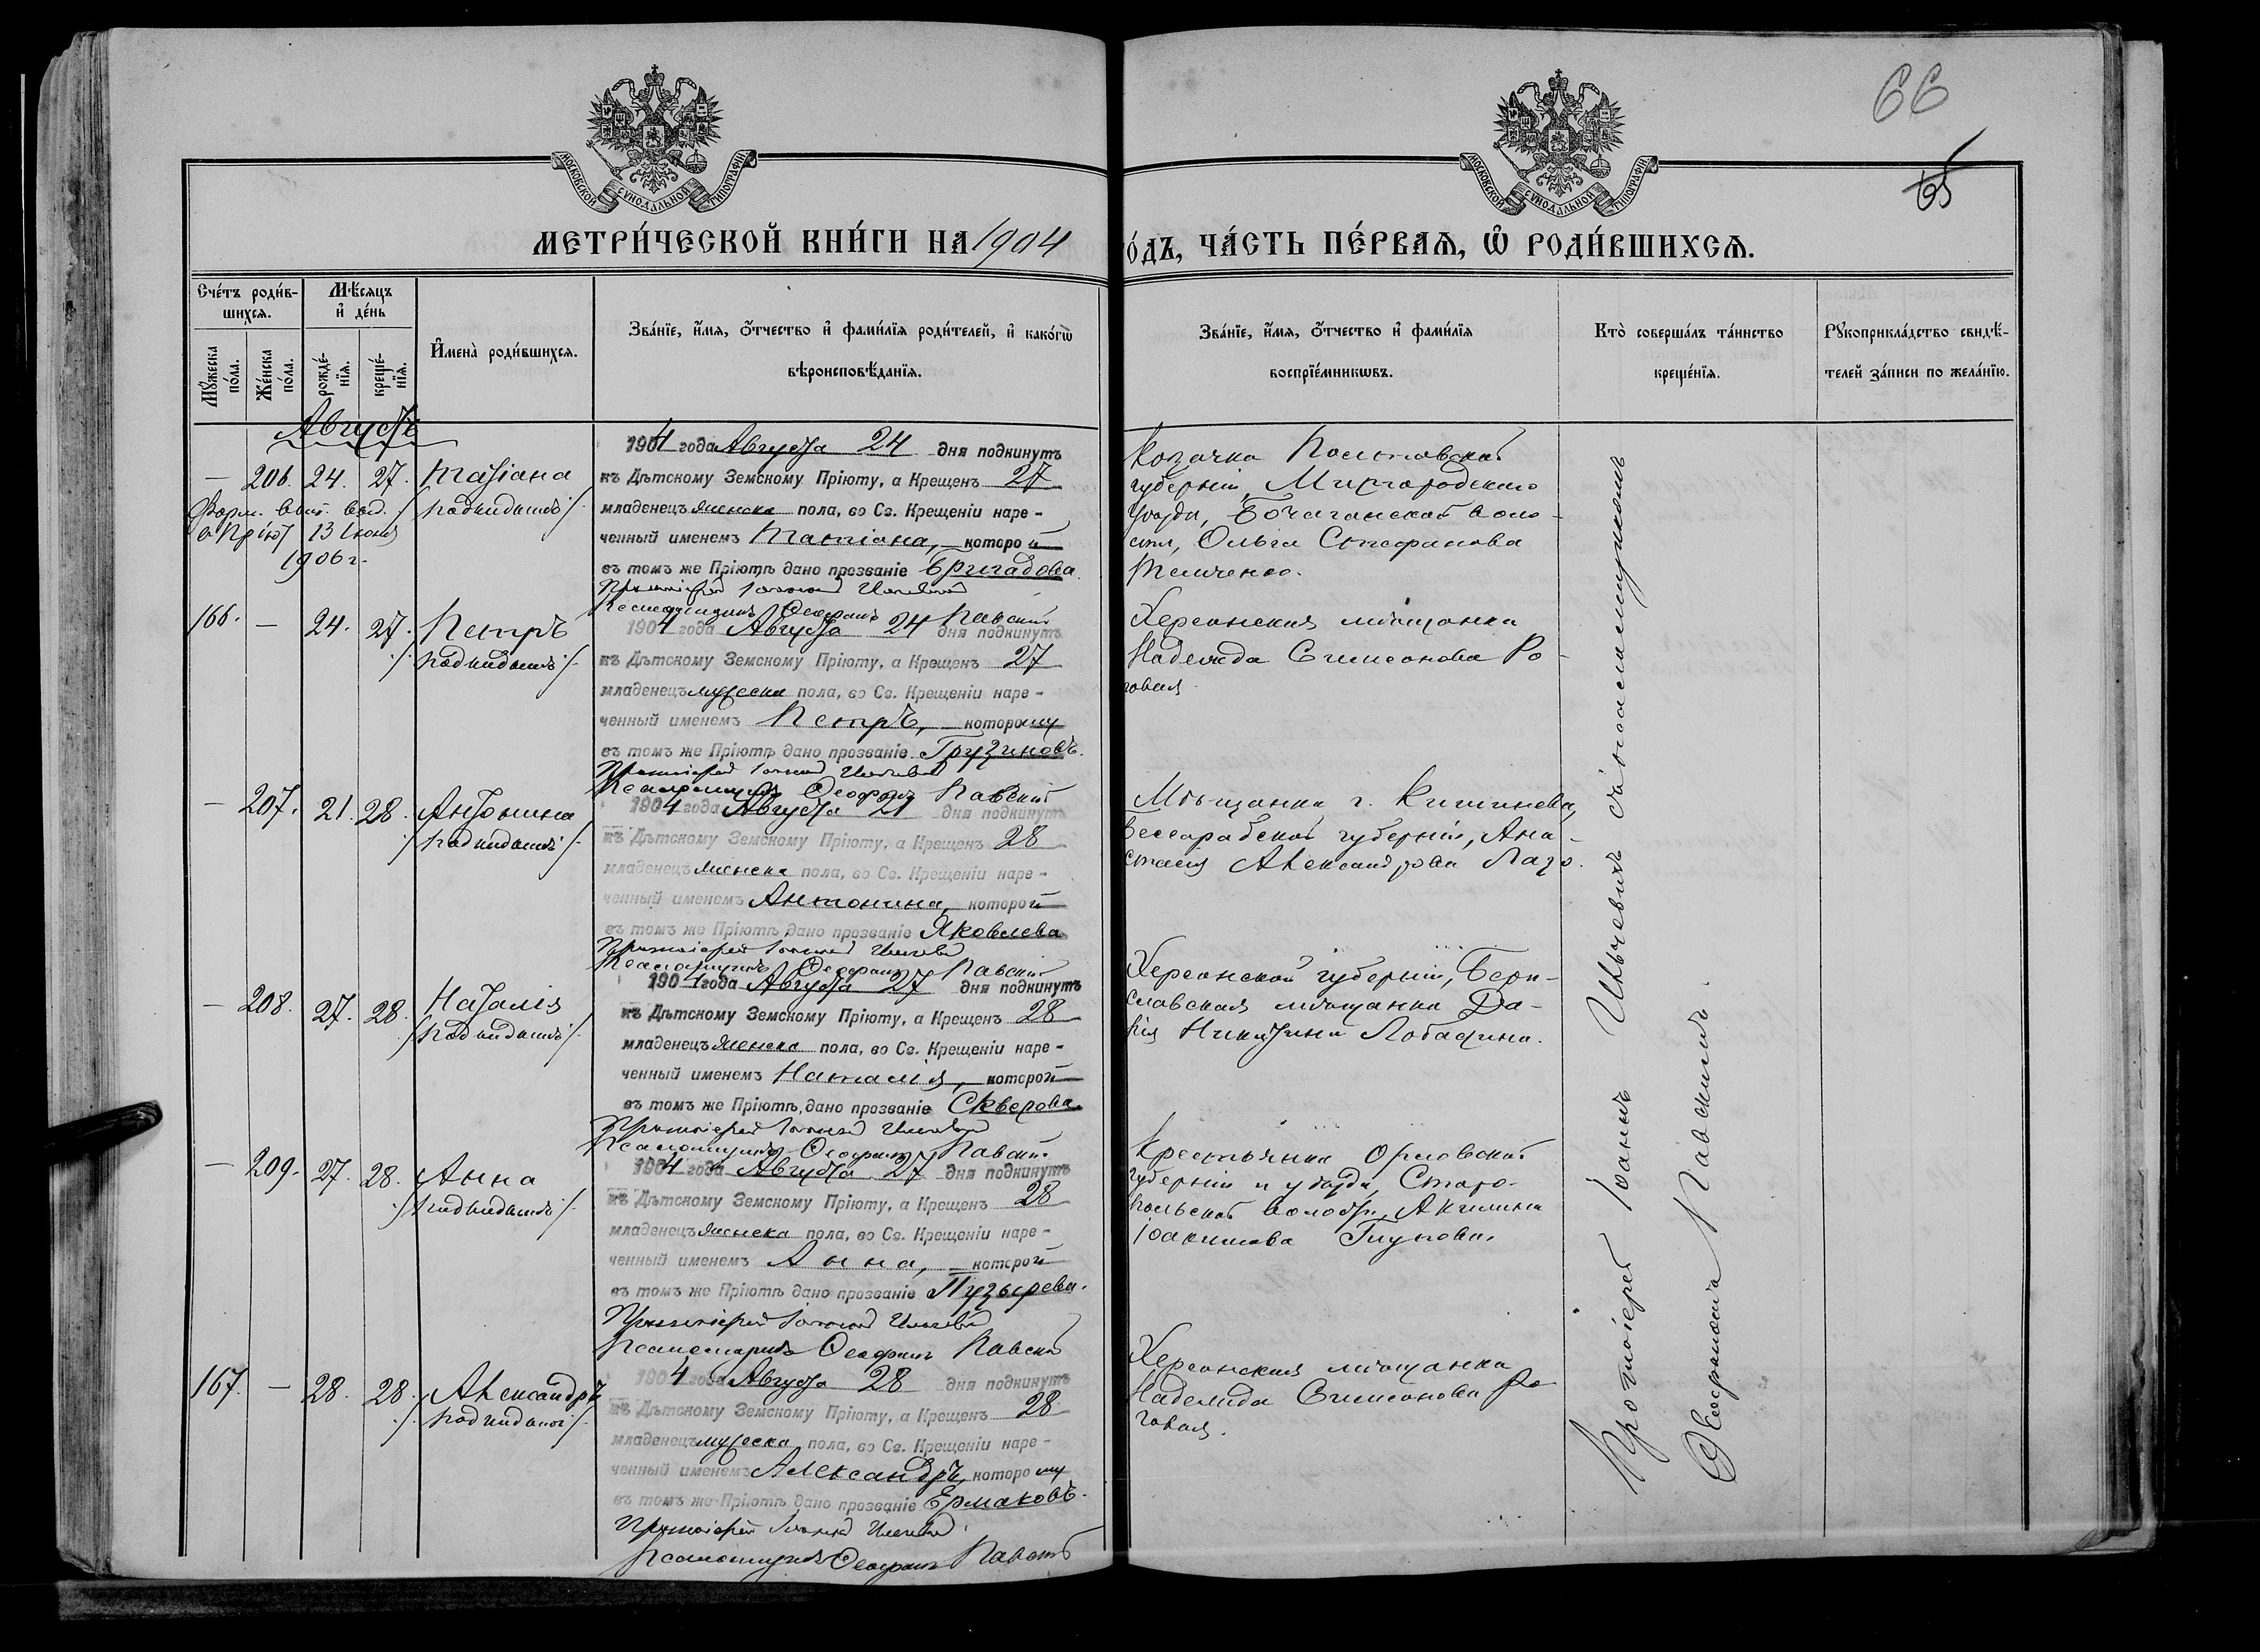 66
65
МОСКОВСКОЙ СѴНОДАЛЬНОЙ ТИПОГРАФІИ
МОСКОВСКОЙ СѴНОДАЛЬНОЙ ТИПОГРАФІИ
МЕТРИ́ЧЕСКОЙ КНИ́ГИ НА 1904
О́ДЪ, ЧА́СТЬ ПЕ́РВАЯ, Ѡ РОДИ́ВШИХСЯ.
Сче́тъ роди́в-
шихся.
Мꙋжеска
по́ла.
Же́нска
по́ла.
Мѣ́сяцъ
и҆ де́нь
рожде́-
нїя.
креще́-
нїя.
И҆мена̀ роди́вшихся.
Зва́нїе, и҆́мя, ѻ҆́тчество и҆ фами́лїя роди́телей, и҆ како́гѡ
вѣроисповѣ́данїя.
Зва́нїе, и҆́мя, ѻ҆́тчество и҆ фами́лїя
воспрїе́мникѡвъ.
Кто̀ соверша́лъ та́инство
креще́нїя.
Рꙋкоприкла́дство свидѣ́-
телей за́писи по жела́нїю.
Августъ
— 206. 24. 27. Татіана
/подкидышъ/.
Форм. выд.
в Пріют 13 Іюня
1906 г.
1904 года Августа 24 дня подкинутъ
къ Дѣтскому Земскому Пріюту, а Крещенъ 27
младенецъ женска пола, во Св. Крещеніи наре-
ченный именемъ Татіана, которой
въ томъ же Пріютѣ дано прозваніе Бригадова.
Протоіерей Іоаннъ Ильчевичъ
Псаломщикъ Феофанъ Павскій
Козачка Полтавской
губерніи, Миргородскаго
уѣзда, Бочаганской воло-
сти, Ольга Стефанова
Темченко.
166. — 24. 27. Петръ
/подкидышъ/.
1904 года Августа 24 дня подкинутъ
къ Дѣтскому Земскому Пріюту, а Крещенъ 27
младенецъ мужеска пола, во Св. Крещеніи наре-
ченный именемъ Петръ, которому
въ томъ же Пріютѣ дано прозваніе Грузиновъ.
Протоіерей Іоаннъ Ильчевичъ
Псаломщикъ Феофанъ Павскій
Херсонская мѣщанка
Надежда Симеонова Ро-
говая.
— 207. 21. 28. Антонина
/подкидышъ/.
1904 года Августа 21 дня подкинутъ
къ Дѣтскому Земскому Пріюту, а Крещенъ 28
младенецъ женска пола, во Св. Крещеніи наре-
ченный именемъ Антонина, которой
въ томъ же Пріютѣ дано прозваніе Яковлева
Протоіерей Іоаннъ Ильчевичъ
Псаломщикъ Феофанъ Павскій
Мѣщанка г. Кишинева,
Бессарабской губерніи, Ана-
стасія Александрова Лазо.
— 208. 27. 28. Наталія
/подкидышъ/.
1904 года Августа 27 дня подкинутъ
къ Дѣтскому Земскому Пріюту, а Крещенъ 28
младенецъ женска пола, во Св. Крещеніи наре-
ченный именемъ Наталія, которой
въ томъ же Пріютѣ, дано прозваніе Скверова.
Протоіерей Іоаннъ Ильчевичъ
Псаломщикъ Феофанъ Павскій
Херсонской губерніи, Бери-
славская мѣщанка Да-
рія Никитина
— 209. 27. 28. Анна
/подкидышъ/.
1904 года Августа 27 дня подкинутъ
къ Дѣтскому Земскому Пріюту, а Крещенъ 28
младенецъ женска пола, во Св. Крещеніи наре-
ченный именемъ Анна, которой
въ томъ же Пріютѣ дано прозваніе Пузырева.
Протоіерей Іоаннъ Ильчевичъ
Псаломщикъ Феофанъ Павскій
Крестьянка Орловской
губерніи и уѣзда, Старо-
польской волости, Акилина
Іоакимова
167. — 28. 28. Александръ
/подкидышъ/.
1904 года Августа 28 дня подкинутъ
къ Дѣтскому Земскому Пріюту, а Крещенъ 28
младенецъ мужеска пола, во Св. Крещеніи наре-
ченный именемъ Александръ, которому
въ томъ же Пріютѣ дано прозваніе Ермаковъ.
Протоіерей Іоаннъ Ильчевичъ
Псаломщикъ Феофанъ Павскій
Херсонская мѣщанка
Надежда Симеонова Ро-
говая.
Протоіерей Іоаннъ Ильчевичъ съ псаломщикомъ
Феофаномъ Павскимъ.